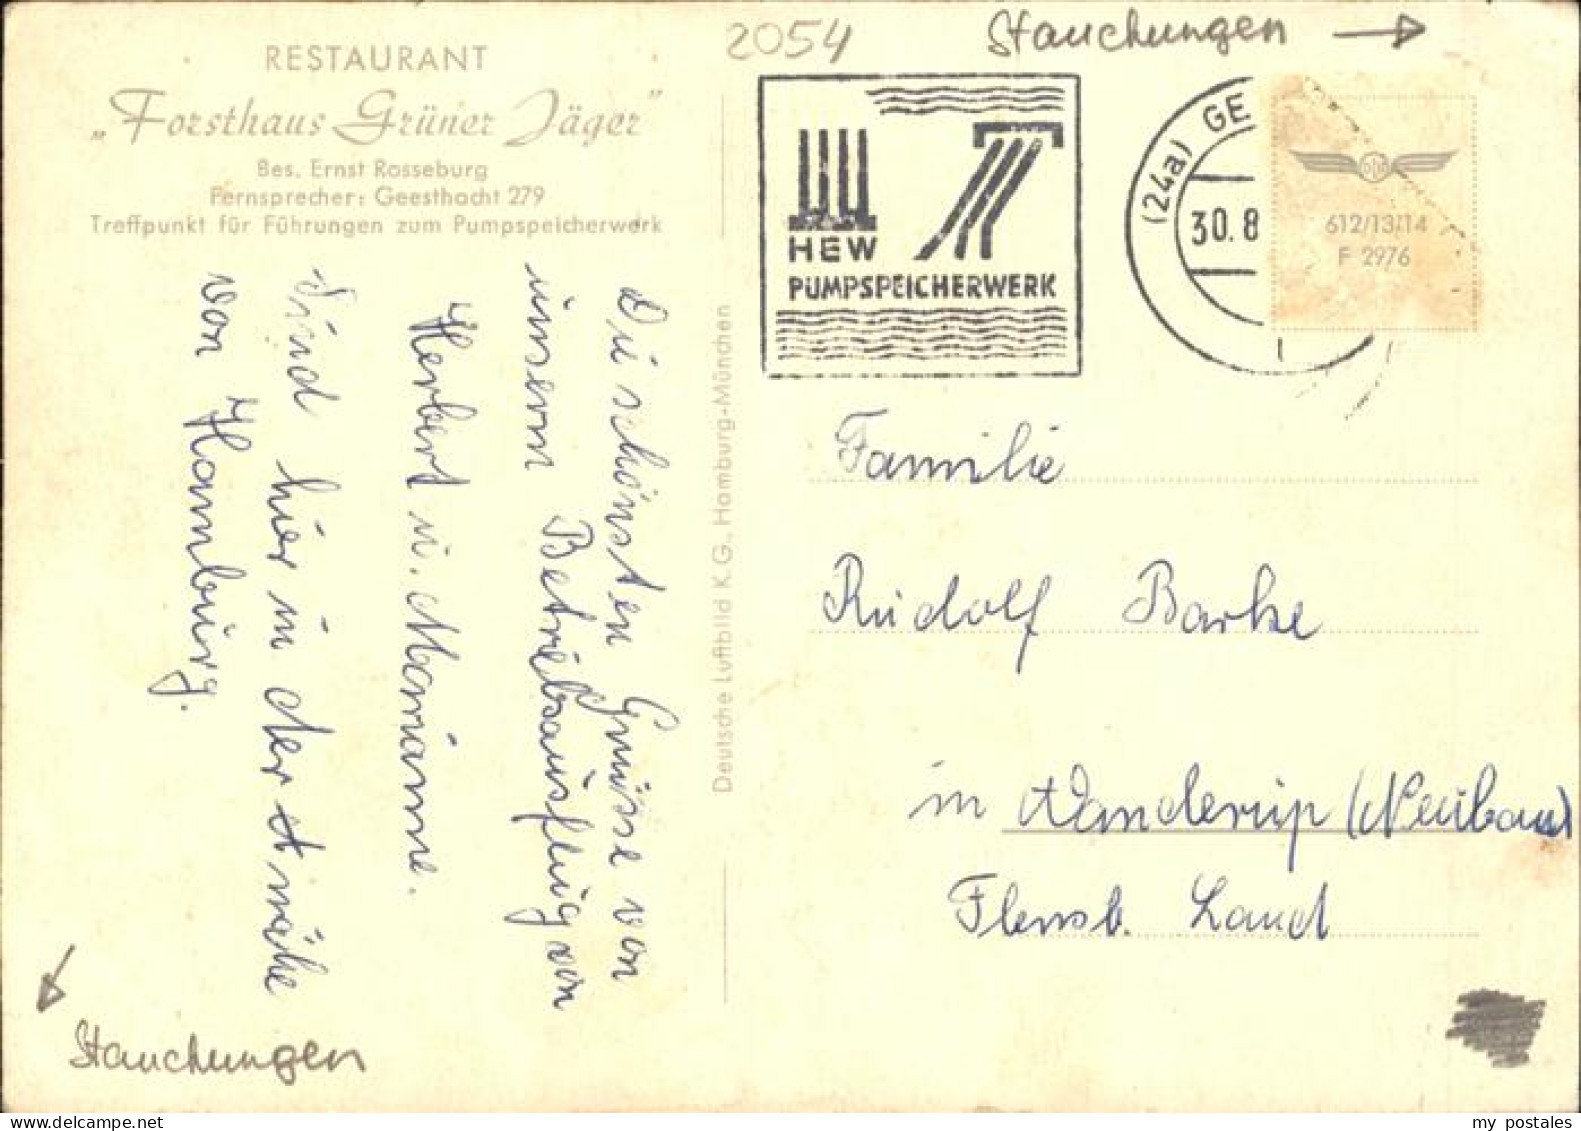 RESTAURANT
„Forsthaus Grüner Jäger"
Bes. Ernst Rosseburg
Fernsprecher: Geesthacht 279
Treffpunkt für Führungen zum Pumpspeicherwerk
Die schönsten Grüsse von
unserem Betriebsausflug von
Herbert u. Marianne.
Sind hier in der Nähe
von Hamburg.
Stauchungen
Deutsche Luftbild K.G., Hamburg-München
2054
Stauchungen
HEW
PUMPSPEICHERWERK
(24a) GE
30.8
612/13/14
F 2976
Familie
Rudolf Barke
in Wanderup (Neubau)
Flensb. Land
my postales